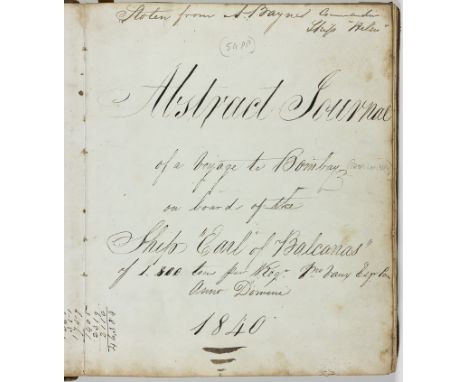 Stolen from A. Baynes Commander
Ship "Helen"
Abstract Journal
of a Voyage to Bombay
on board of the
Ship "Earl" of Balcanas"
of 1.800 tons per Reg.
Anno Domini
1840